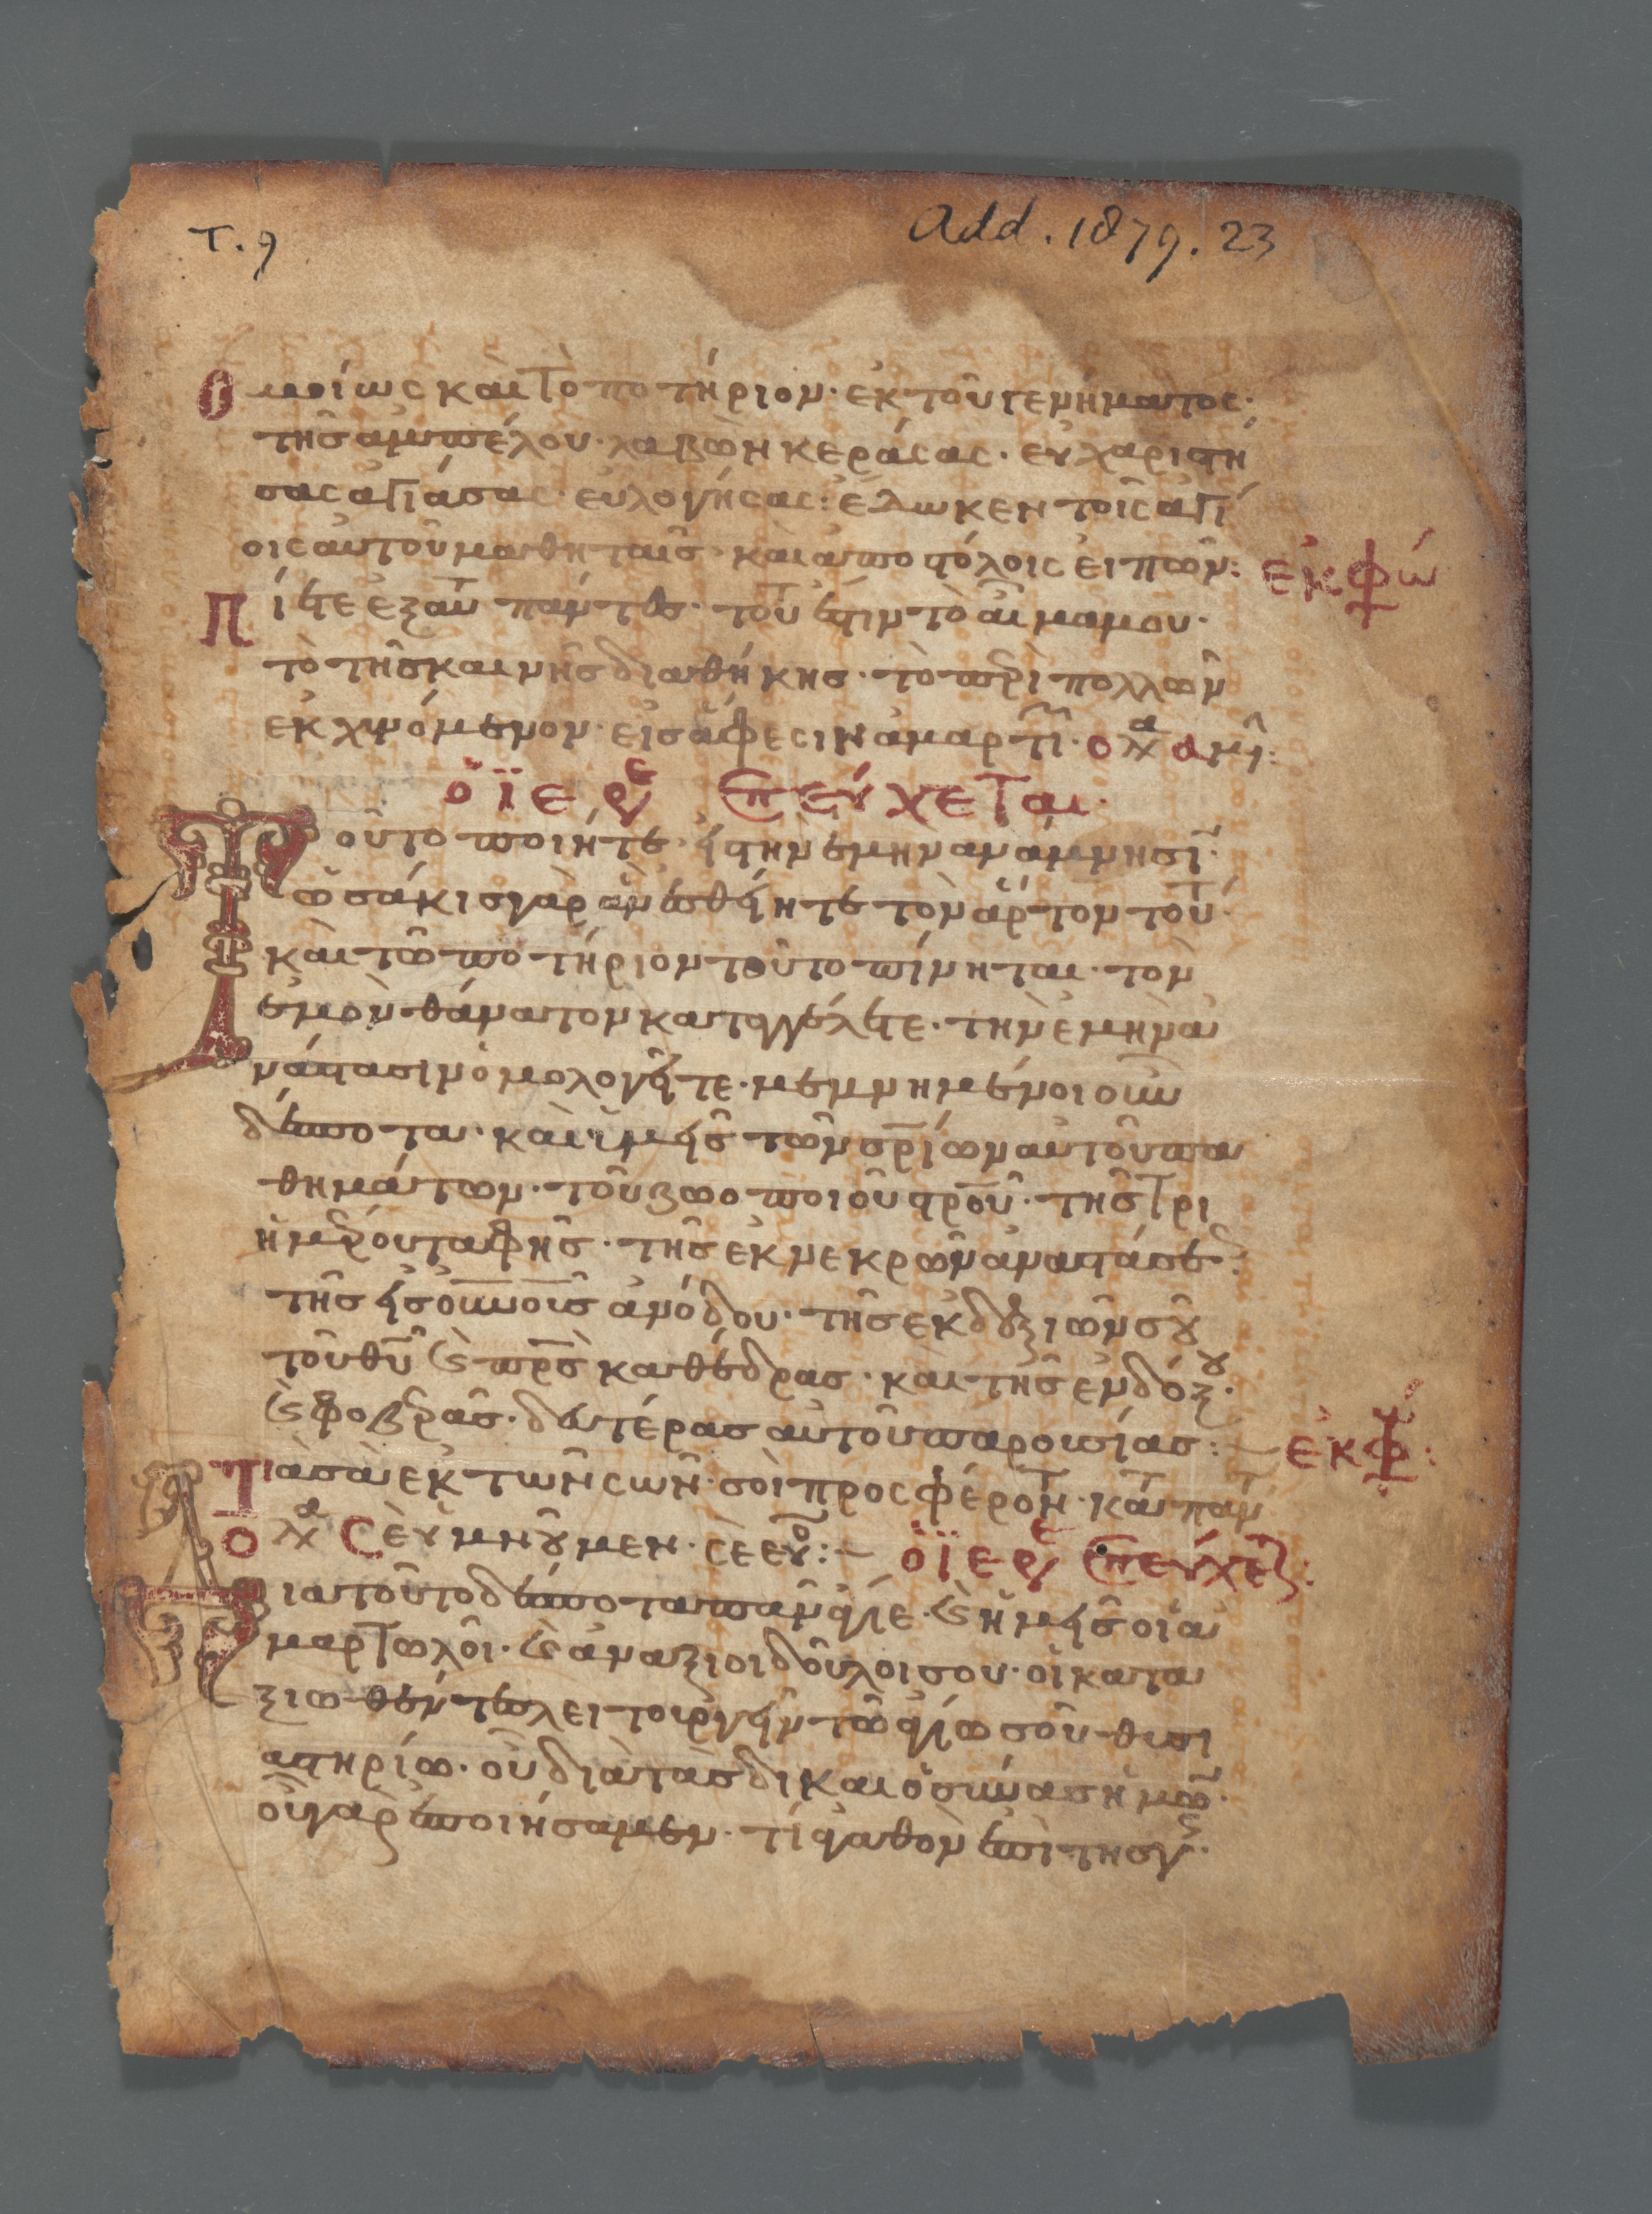 τ. 9
Add. 1879. 23
Ομοίως καὶ τὸ ποτήριον· ἐκ τοῦ γενήματος·
τῆς ἀμπέλου· λαβὼν κεράσας· εὐχαριστή
σας ἁγιάσας· εὐλογήσας: ἔδωκεν τοῖς ἁγί
οις αὐτοῦ μαθηταῖς· καὶ ἀποστόλοις εἰπών: ἐκφώ
Πίετε ἐξ αυτ πάντες· τοῦτ ἐστιν τὸ αἷμα μου·
τὸ τῆς καινῆς διαθήκης· τὸ περὶ πολλῶν
ἐκχυνόμενον· εἰς ἄφεσιν ἁμαρτι· ο λα αμι:
ὁ ϊερε επεύχεται·
Τοῦτο ποιήτε· εἰς τὴν ἐμὴν ἀνάμνησι·
ὡσάκις γὰρ ἂν ἐσθίητε τὸν ἄρτον τοῦτ·
καὶ τῶ ποτήριον τοῦτο πίνηται· τὸν
ἐμὸν θάνατον καταγγέλετε· τὴν ἐμὴν ἀ
νάστασιν ὁμολογεῖτε· μεμνημένοι οὖν
δέσποτα· καὶ ἡμεῖς τῶν σρίων αὐτοῦ πα
θημάτων· τοῦ ζωοποιοῦ στροῦ· τῆς τρι
ημέρου ταφῆς· τῆς ἐκ νεκρῶν ἀναστάσε·
τῆς εἰς οὐνοὺς ἀνόδου· τῆς ἐκ δεξιῶν σοῦ
τοῦ θυ κ πρς καθέδρας· καὶ τῆς ἐνδόξου·
κ φοβερᾶς· δευτέρας αὐτοῦ παρουσίας: ἐκφ:
Τὰ σὰ ἐκ τῶν σῶν· σοὶ προσφέροντ· κατ παντ
ὁ λα Σὲ ὑμνοῦμεν· σὲ ευ: ὁ ϊερε επεύχετ:
Διατοῦτο δέσποτα πανάγιε· κ ἡμεῖς οἱ ἁ
μαρτωλοὶ· κ ἀνάξιοι δοῦλοι σου· οἱ κατα
ξιωθέντες λειτουργεῖν τῶ ἁγίω σοῦ θυσι
αστηρίω· οὐ διὰ τὰς δικαιοσύνας ἡμῶ·
οὐ γὰρ ἐποιήσαμεν· τί ἀγαθὸν ἐπὶ τῆς γῆς·